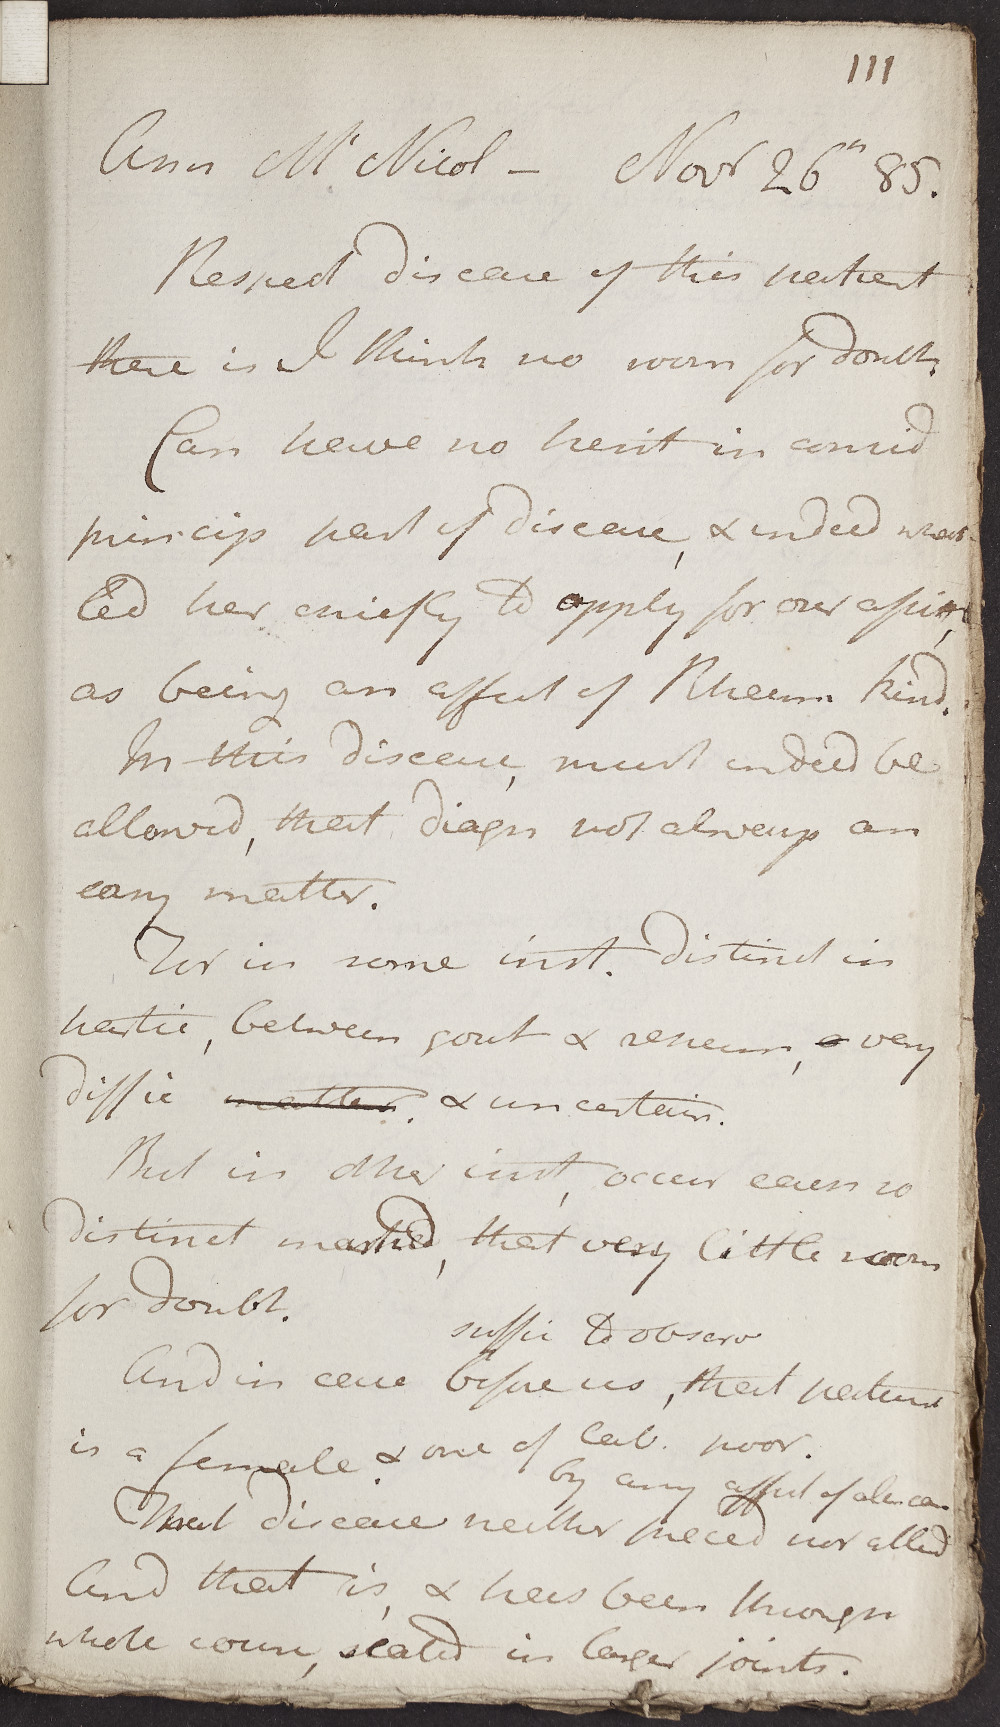 111
Ann McNicol – Novr 26th 85.
Respect disease of this patient
there is I think no room for doubt.
Can have no hesit in consid
princip part of disease, & indeed what
led her chiefly to apply for our assist,
as being an affect of Rheum kind.
In this disease, must indeed be
allowed, that diagn not always an
easy matter.
For in some inst. distinct in
partic, between gout & rheum, very
diffic matter. & uncertain.
But in other inst, occur cases so
distinct marked, that very little room
for doubt.
suffic to observ
And in case before us, that patient
is a female & one of lab. poor.
by any affect of alim can
That disease neither preced nor attend
And that is, & has been through
whole course, seated in larger joints.